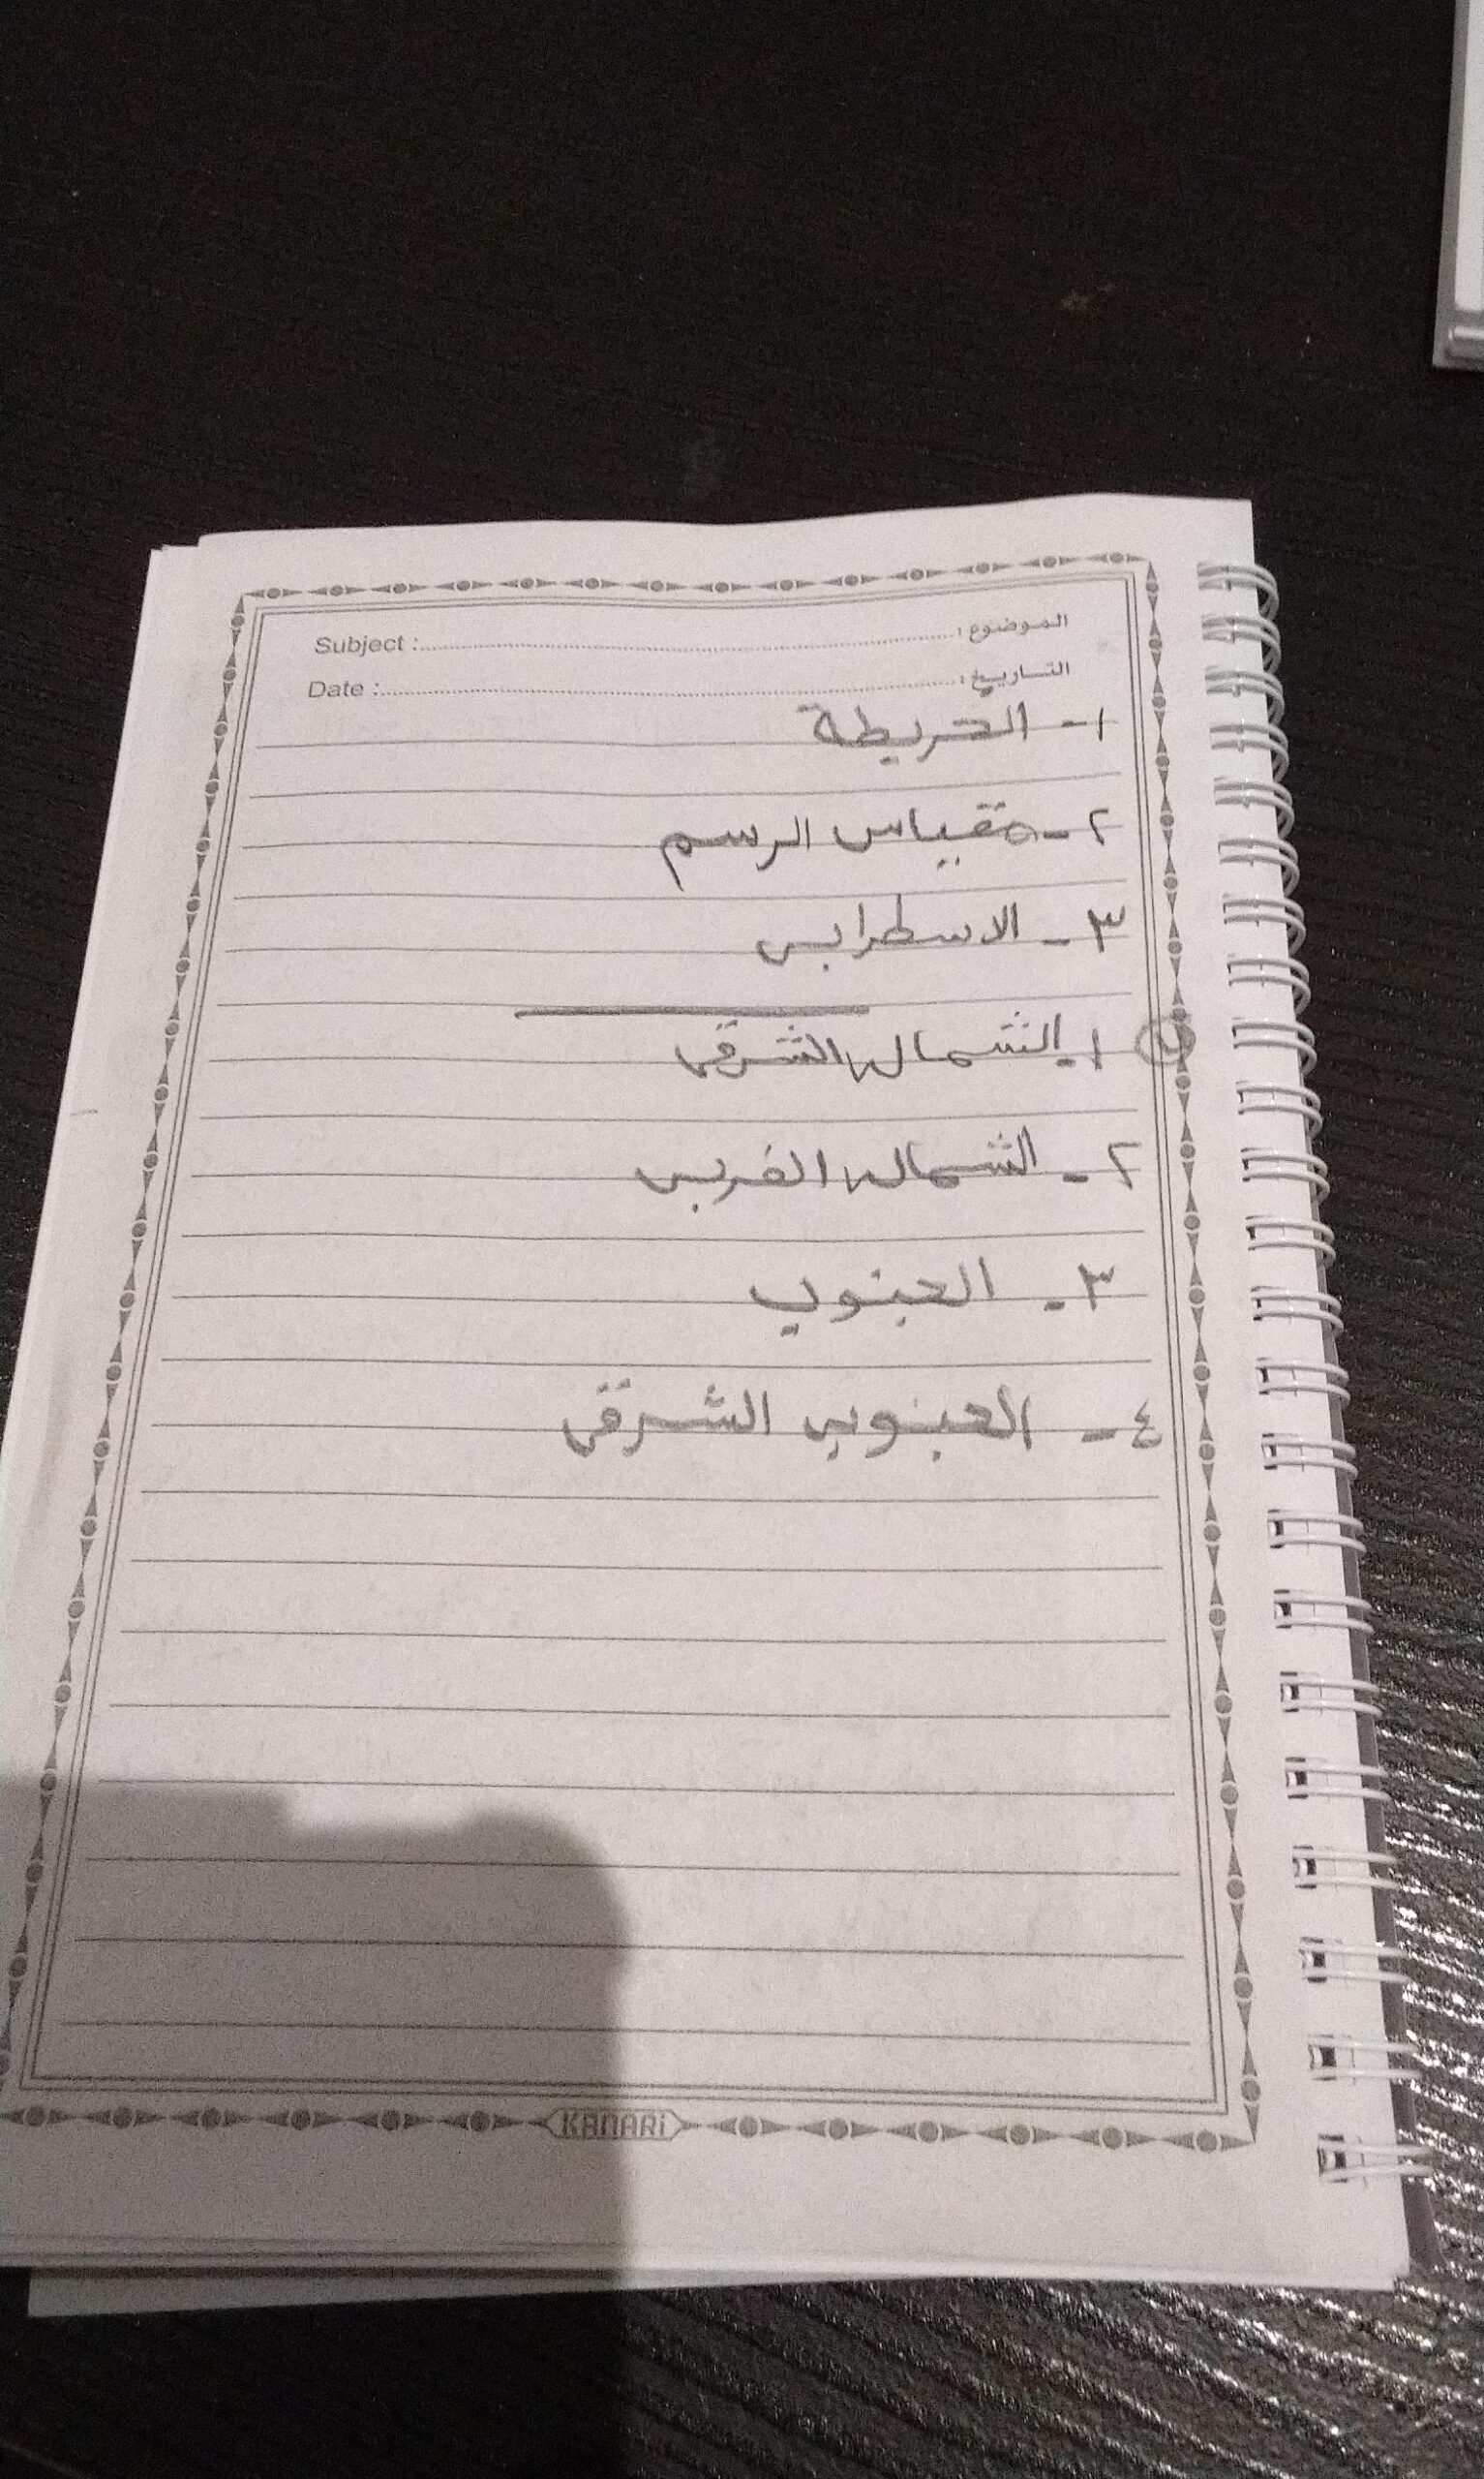 Subject : الموضوع :
Date : التاريخ :
١- الخريطة
٢- مقياس الرسم
٣- الاسطرابى
١- الشمال الشرقى
٢- الشمال الغربى
٣- الجنوب
٤- الجنوبى الشرقى
KANARi